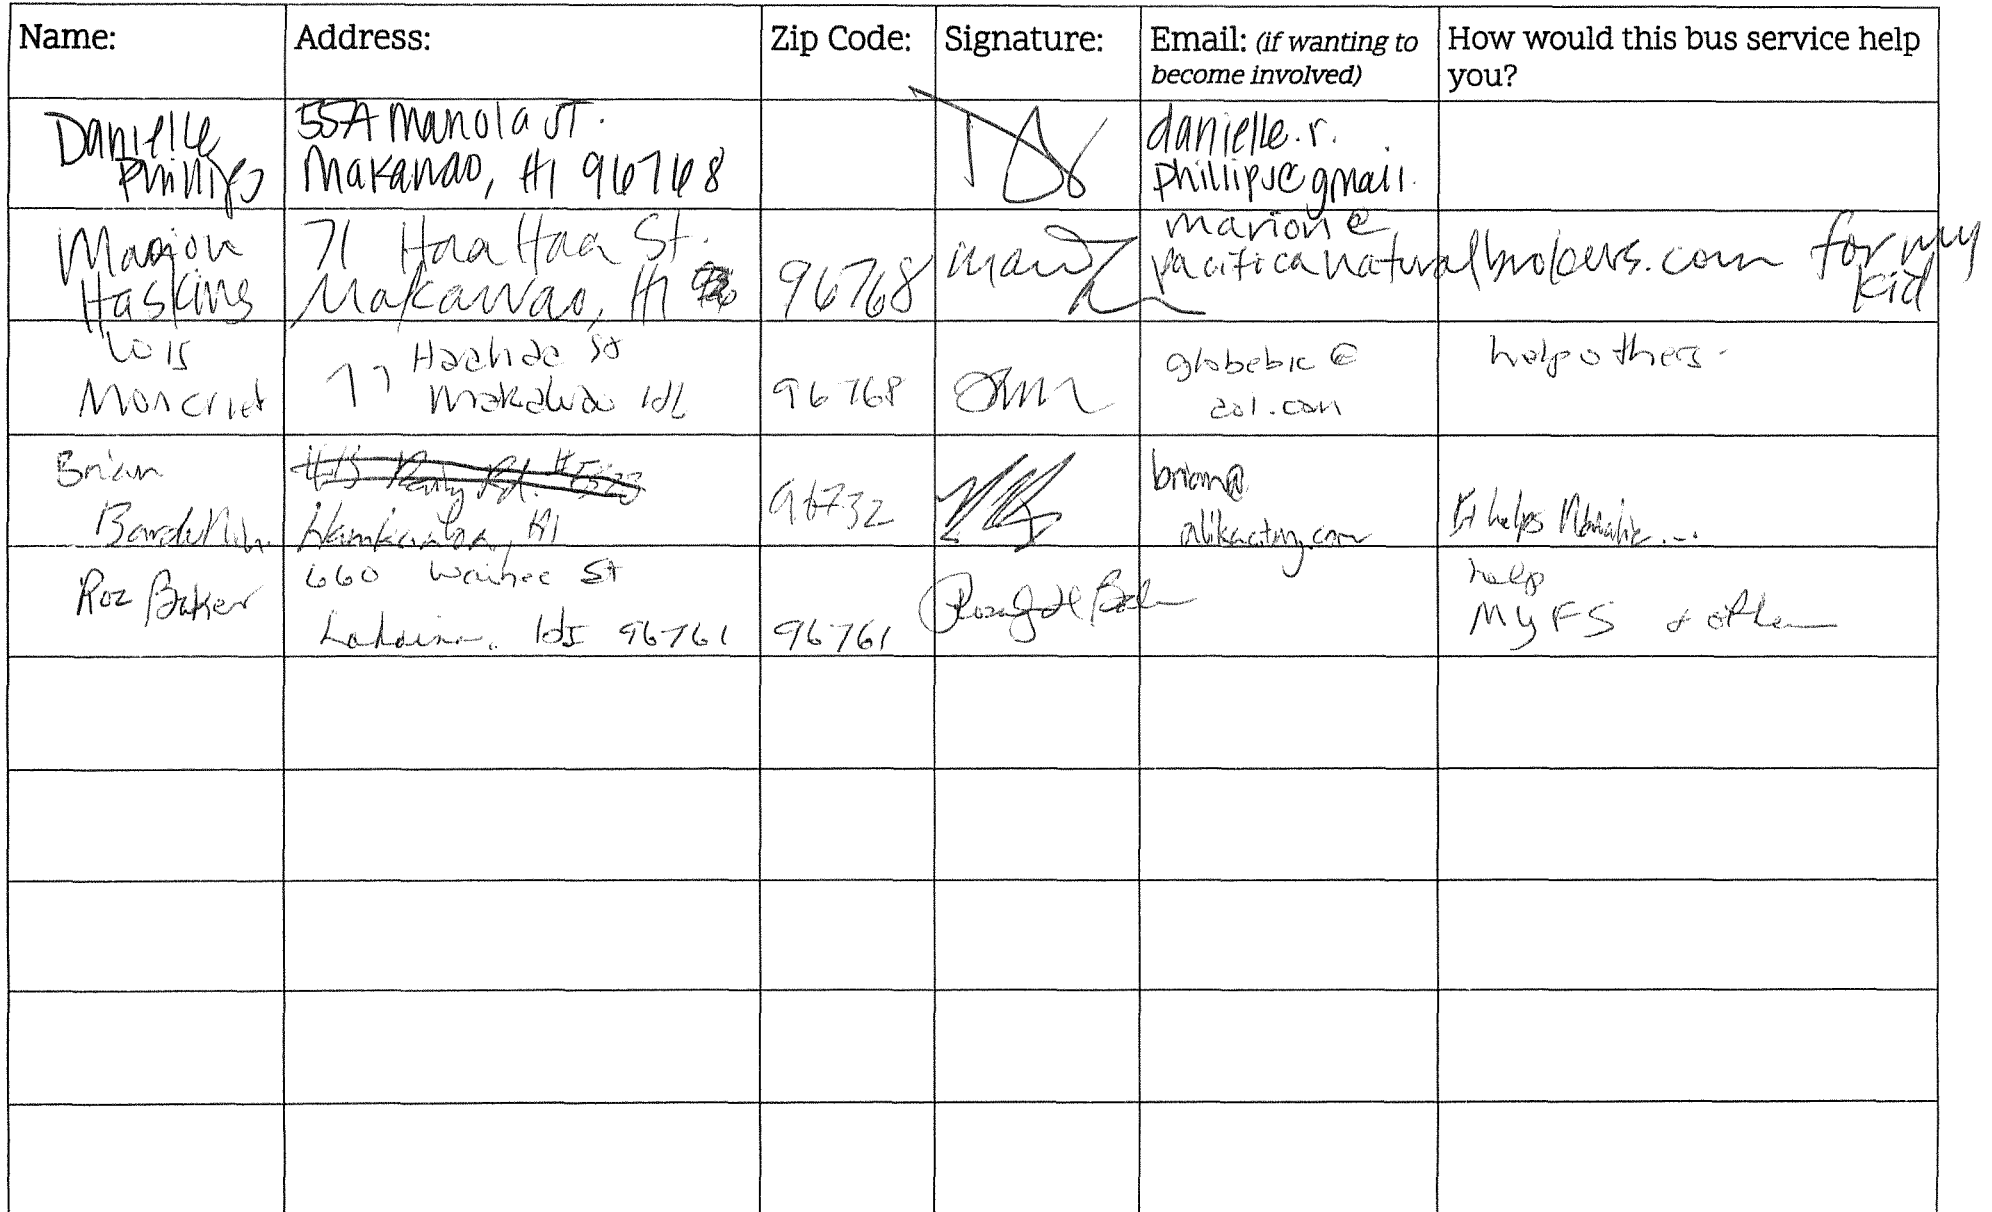 Name: Address: Zip Code: Signature: Email: (if wanting to become involved) How would this bus service help you?
Danielle Phillips
55A Manola St.
Makawao, HI 96768
danielle.r.
phillips@gmail.
Marion Haskins
71 Haa Haa St.
Makawao, HI
96768
marion@
pacificanaturalbrokers.com
for my
kid
Lois
Moncrief
77 Haahaa St
Makawao HI
96768
globebic@
aol.com
help others.
Brian
#5823
HI
96732
brian@
It helps
Roz Baker
660 Wainee St
Lahaina, HI 96761
96761
help
My FS & other